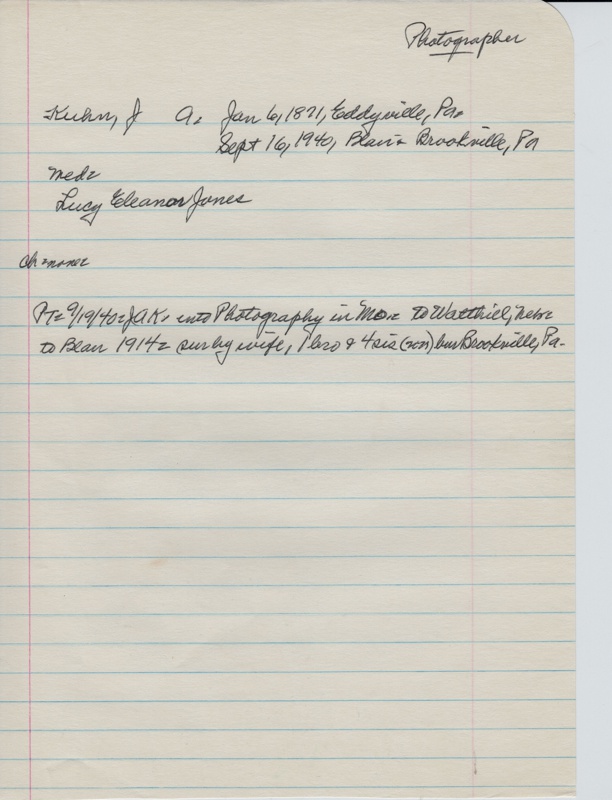 Photographer
Kuhn, J A. Jan 6, 1871, Eddyville, Pa.
Sept 16, 1940, Blair = Brookville, Pa
Med=
Lucy Eleanor Jones
Ch = none=
PT= 9/19/40= JAK, into Photography in Mo.= to Walthill, Nebr
to Blair 1914= sur by wife, 1 bro & 4 sis (non) bur Brookville, Pa-